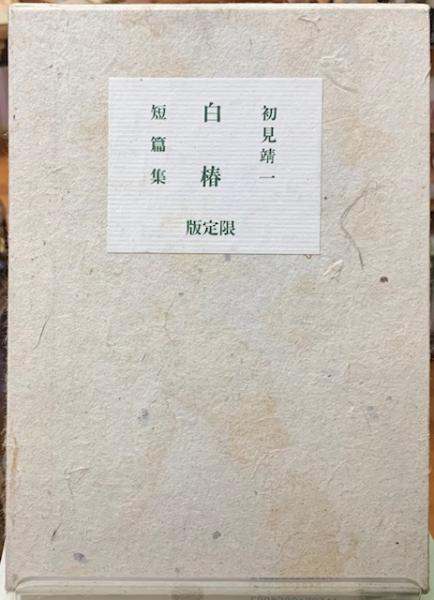 初見靖一
白椿
短篇集
限定版